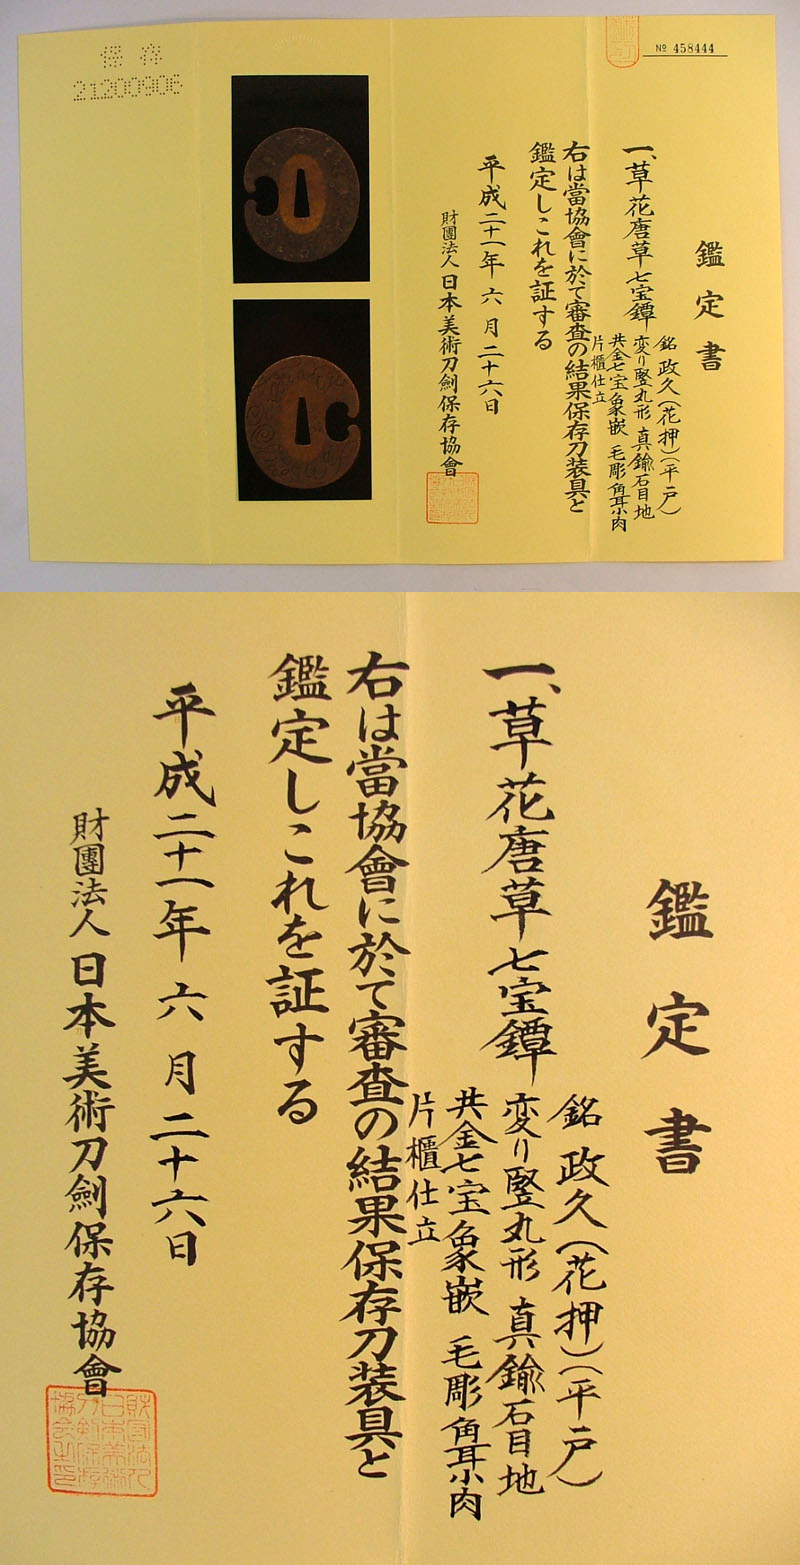 保存
21200906
№ 458444
鑑定書
一、草花唐草七宝鐔
銘 政久(花押)(平戸)
変り竪丸形 真鍮石目地
共金七宝象嵌 毛彫 角耳小肉
片櫃仕立
右は當協會に於て審査の結果保存刀装具と
鑑定しこれを証する
平成二十一年 六 月 二十六日
財團法人 日本美術刀劍保存協會
鑑定書
一、草花唐草七宝鐔
銘 政久(花押)(平戸)
変り竪丸形 真鍮石目地
共金七宝象嵌 毛彫 角耳小肉
片櫃仕立
右は當協會に於て審査の結果保存刀装具と
鑑定しこれを証する
平成二十一年 六 月 二十六日
財團法人 日本美術刀劍保存協會
財団法人
日本美術
刀剣保存
協会之印